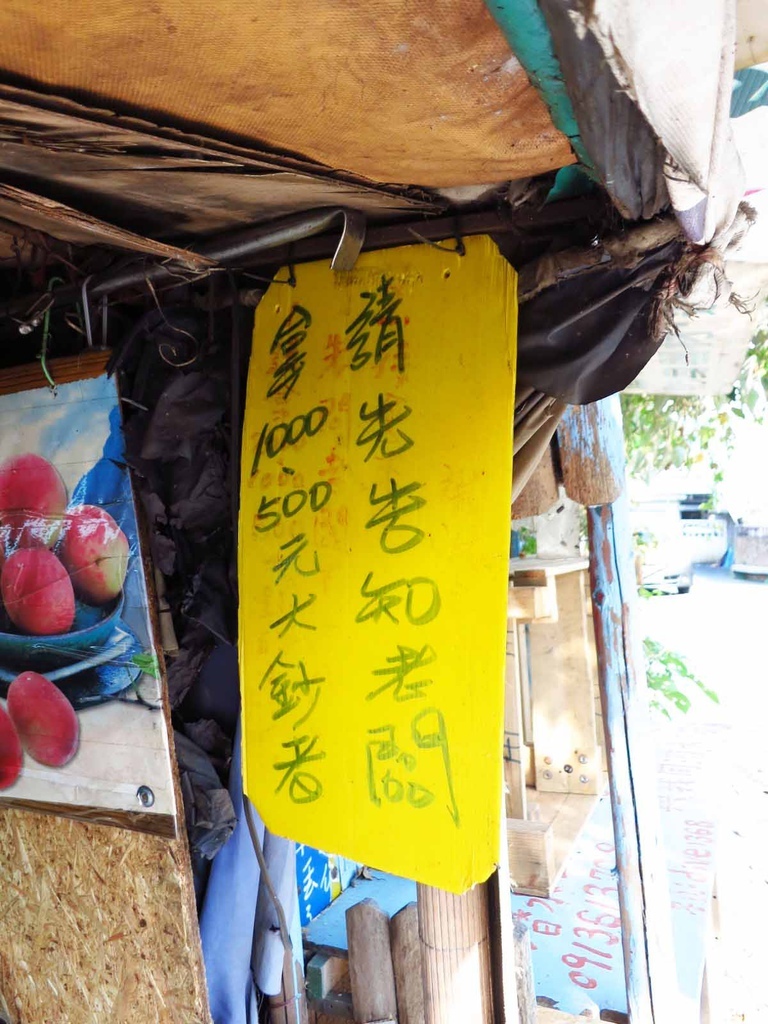 請先告知老闆
拿1000、500元大鈔者